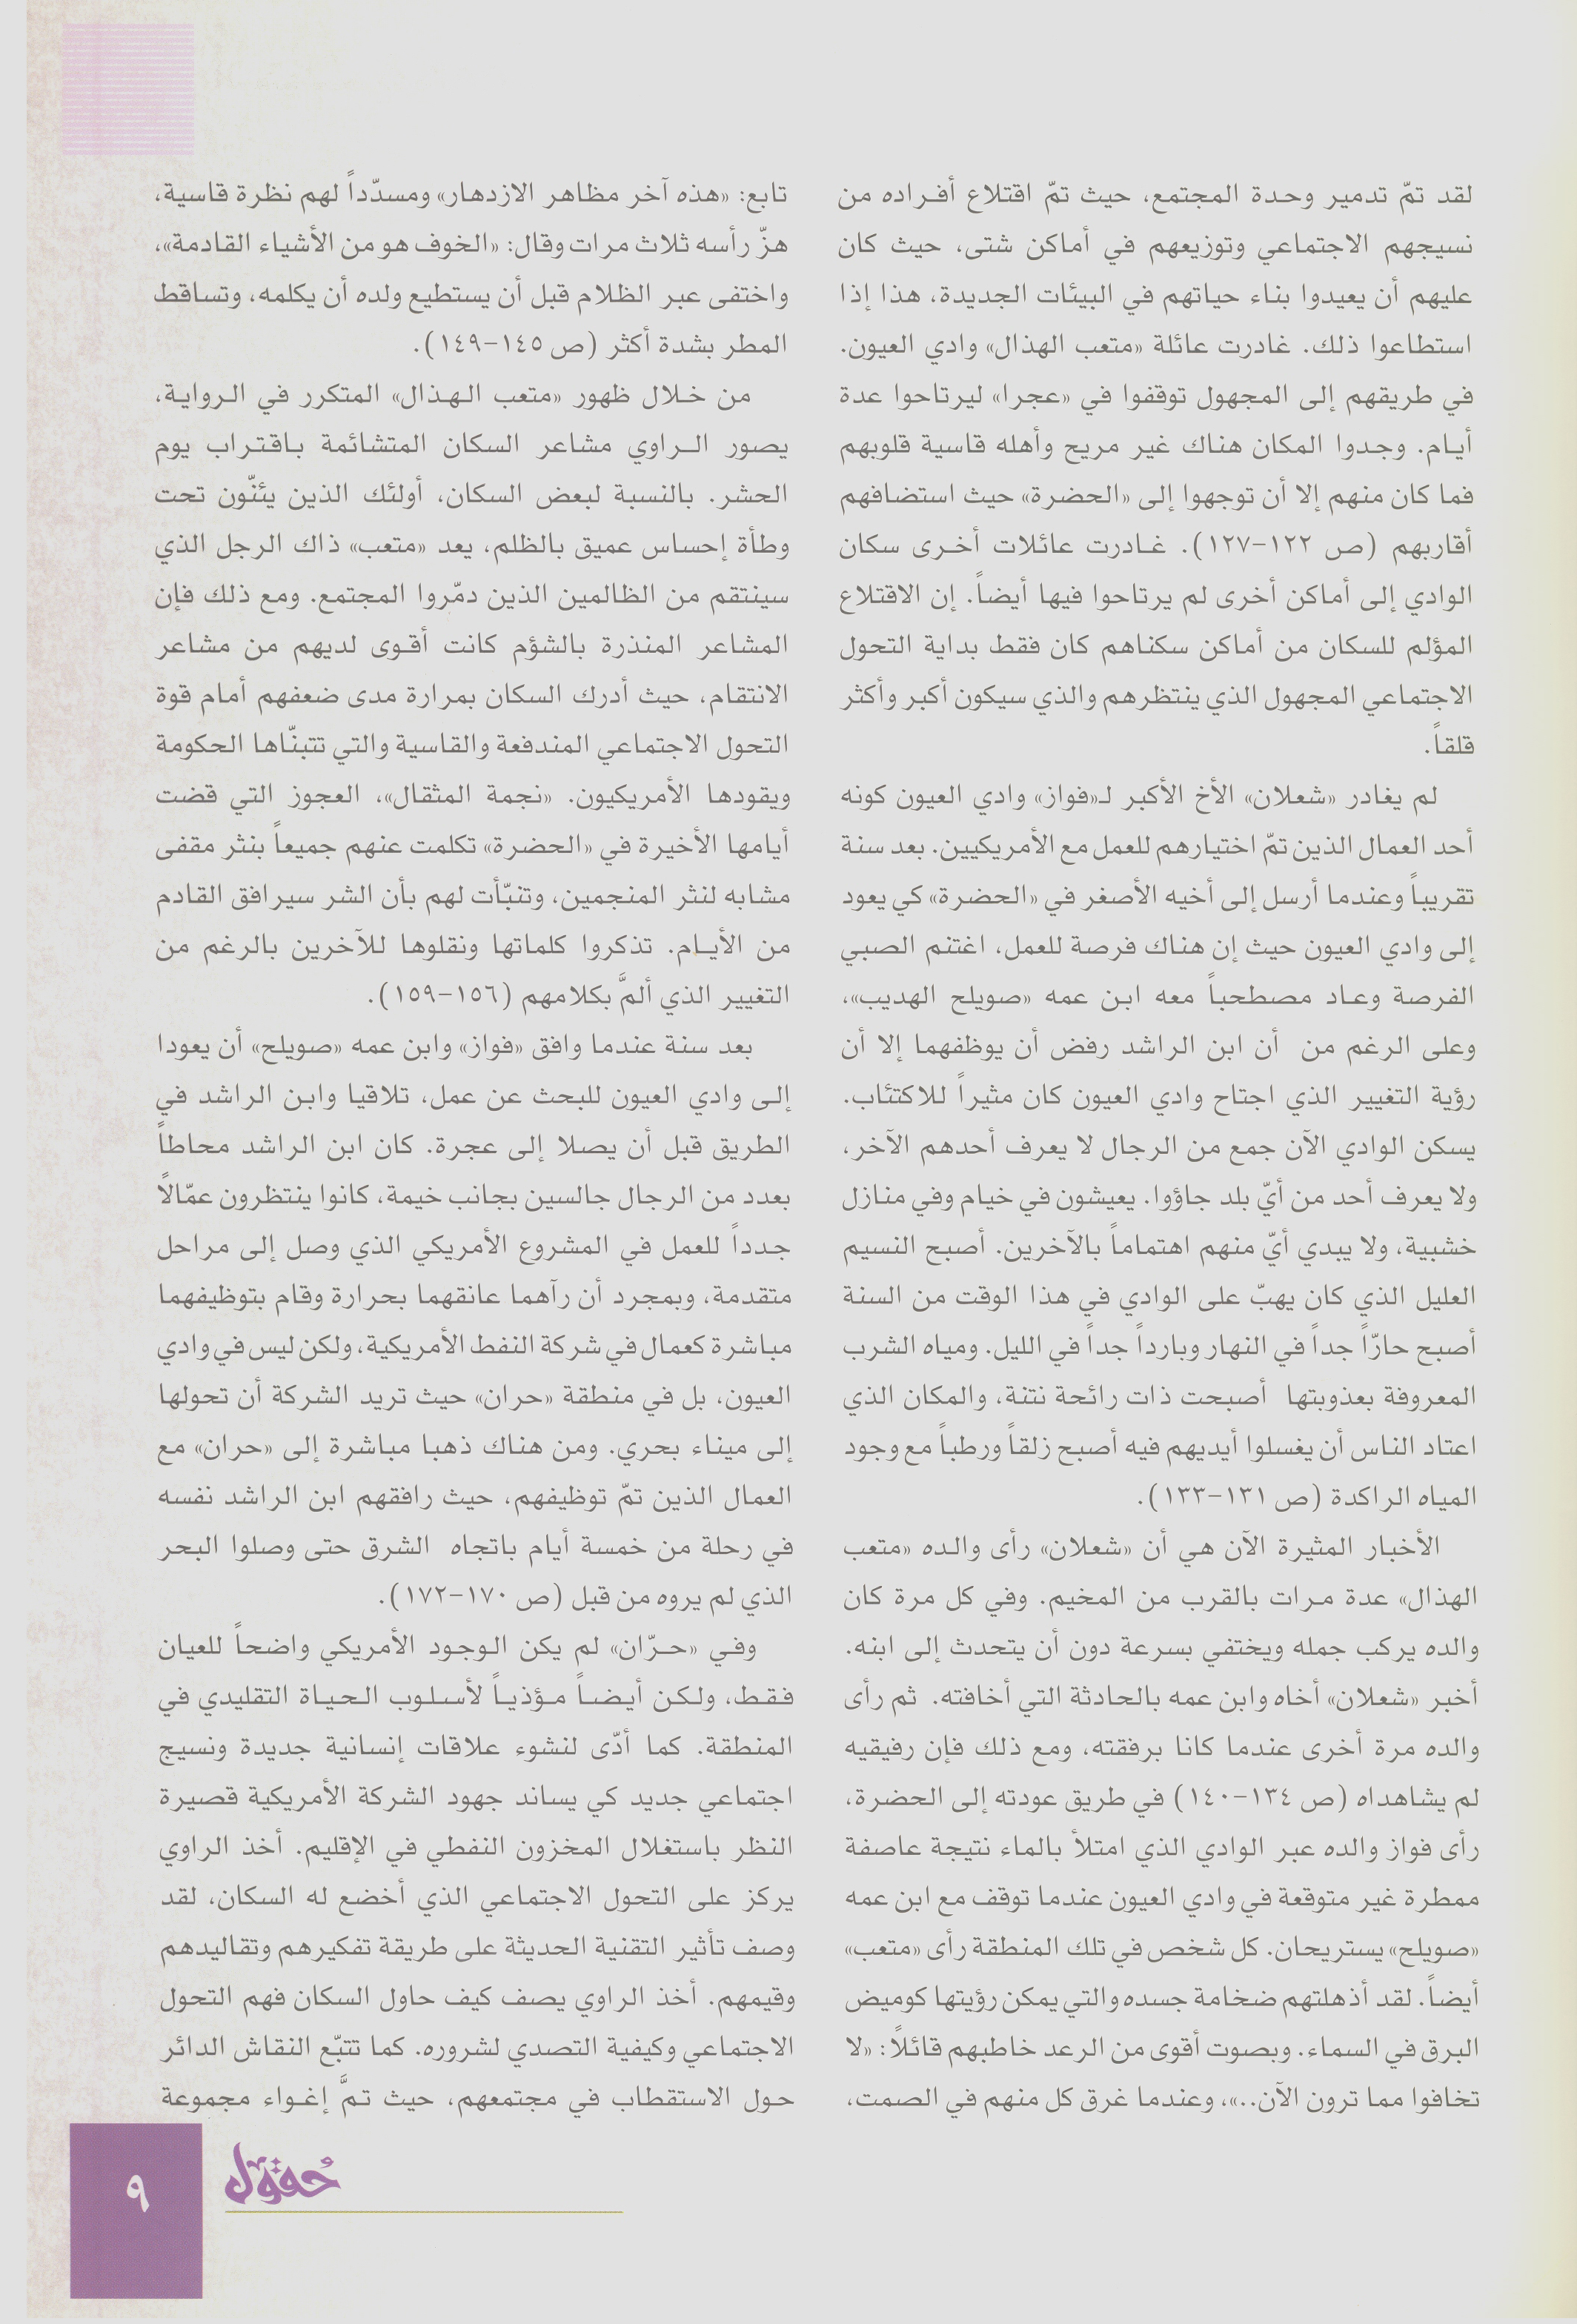 لقد تمّ تدمير وحدة المجتمع، حيث تمّ اقتلاع أفراده من
نسيجهم الاجتماعي وتوزيعهم في أماكن شتى، حيث كان
عليهم أن يعيدوا بناء حياتهم في البيئات الجديدة، هذا إذا
استطاعوا ذلك. غادرت عائلة «متعب الهذال» وادي العيون.
في طريقهم إلى المجهول توقفوا في «عجرا» ليرتاحوا عدة
أيام. وجدوا المكان هناك غير مريح وأهله قاسية قلوبهم
فما كان منهم إلا أن توجهوا إلى «الحضرة» حيث استضافهم
أقاربهم (ص ١٢٢-١٢٧). غادرت عائلات أخرى سكان
الوادي إلى أماكن أخرى لم يرتاحوا فيها أيضاً. إن الاقتلاع
المؤلم للسكان من أماكن سكناهم كان فقط بداية التحول
الاجتماعي المجهول الذي ينتظرهم والذي سيكون أكبر وأكثر
قلقاً.
لم يغادر «شعلان» الأخ الأكبر لـ«فواز» وادي العيون كونه
أحد العمال الذين تمّ اختيارهم للعمل مع الأمريكيين. بعد سنة
تقريباً وعندما أرسل إلى أخيه الأصغر في «الحضرة» كي يعود
إلى وادي العيون حيث إن هناك فرصة للعمل، اغتنم الصبي
الفرصة وعاد مصطحباً معه ابن عمه «صويلح الهديب»،
وعلى الرغم من أن ابن الراشد رفض أن يوظفهما إلا أن
رؤية التغيير الذي اجتاح وادي العيون كان مثيراً للاكتئاب.
يسكن الوادي الآن جمع من الرجال لا يعرف أحدهم الآخر،
ولا يعرف أحد من أيّ بلد جاؤوا. يعيشون في خيام وفي منازل
خشبية، ولا يبدي أيّ منهم اهتماماً بالآخرين. أصبح النسيم
العليل الذي كان يهبّ على الوادي في هذا الوقت من السنة
أصبح حارّاً جداً في النهار وبارداً جداً في الليل. ومياه الشرب
المعروفة بعذوبتها أصبحت ذات رائحة نتنة، والمكان الذي
اعتاد الناس أن يغسلوا أيديهم فيه أصبح زلقاً ورطباً مع وجود
المياه الراكدة (ص ١٣١-١٣٣).
الأخبار المثيرة الآن هي أن «شعلان» رأى والده «متعب
الهذال» عدة مرات بالقرب من المخيم. وفي كل مرة كان
والده يركب جمله ويختفي بسرعة دون أن يتحدث إلى ابنه.
أخبر «شعلان» أخاه وابن عمه بالحادثة التي أخافته. ثم رأى
والده مرة أخرى عندما كانا برفقته، ومع ذلك فإن رفيقيه
لم يشاهداه (ص ١٣٤-١٤٠) في طريق عودته إلى الحضرة،
رأى فواز والده عبر الوادي الذي امتلأ بالماء نتيجة عاصفة
ممطرة غير متوقعة في وادي العيون عندما توقف مع ابن عمه
«صويلح» يستريحان. كل شخص في تلك المنطقة رأى «متعب»
أيضاً. لقد أذهلتهم ضخامة جسده والتي يمكن رؤيتها كوميض
البرق في السماء. وبصوت أقوى من الرعد خاطبهم قائلاً: «لا
تخافوا مما ترون الآن..»، وعندما غرق كل منهم في الصمت،
تابع: «هذه آخر مظاهر الازدهار» ومسدّداً لهم نظرة قاسية،
هزّ رأسه ثلاث مرات وقال: «الخوف هو من الأشياء القادمة»،
واختفى عبر الظلام قبل أن يستطيع ولده أن يكلمه، وتساقط
المطر بشدة أكثر (ص ١٤٥-١٤٩).
من خلال ظهور «متعب الهذال» المتكرر في الرواية،
يصور الراوي مشاعر السكان المتشائمة باقتراب يوم
الحشر. بالنسبة لبعض السكان، أولئك الذين يئنّون تحت
وطأة إحساس عميق بالظلم، يعد «متعب» ذاك الرجل الذي
سينتقم من الظالمين الذين دمّروا المجتمع. ومع ذلك فإن
المشاعر المنذرة بالشؤم كانت أقوى لديهم من مشاعر
الانتقام، حيث أدرك السكان بمرارة مدى ضعفهم أمام قوة
التحول الاجتماعي المندفعة والقاسية والتي تتبنّاها الحكومة
ويقودها الأمريكيون. «نجمة المثقال»، العجوز التي قضت
أيامها الأخيرة في «الحضرة» تكلمت عنهم جميعاً بنثر مقفى
مشابه لنثر المنجمين، وتنبّأت لهم بأن الشر سيرافق القادم
من الأيام. تذكروا كلماتها ونقلوها للآخرين بالرغم من
التغيير الذي ألمَّ بكلامهم (١٥٦-١٥٩).
بعد سنة عندما وافق «فواز» وابن عمه «صويلح» أن يعودا
إلى وادي العيون للبحث عن عمل، تلاقيا وابن الراشد في
الطريق قبل أن يصلا إلى عجرة. كان ابن الراشد محاطاً
بعدد من الرجال جالسين بجانب خيمة، كانوا ينتظرون عمّالاً
جدداً للعمل في المشروع الأمريكي الذي وصل إلى مراحل
متقدمة، وبمجرد أن رآهما عانقهما بحرارة وقام بتوظيفهما
مباشرة كعمال في شركة النفط الأمريكية، ولكن ليس في وادي
العيون، بل في منطقة «حران» حيث تريد الشركة أن تحولها
إلى ميناء بحري. ومن هناك ذهبا مباشرة إلى «حران» مع
العمال الذين تمّ توظيفهم، حيث رافقهم ابن الراشد نفسه
في رحلة من خمسة أيام باتجاه الشرق حتى وصلوا البحر
الذي لم يروه من قبل (ص ١٧٠-١٧٢).
وفي «حرّان» لم يكن الوجود الأمريكي واضحاً للعيان
فقط، ولكن أيضاً مؤذياً لأسلوب الحياة التقليدي في
المنطقة. كما أدّى لنشوء علاقات إنسانية جديدة ونسيج
اجتماعي جديد كي يساند جهود الشركة الأمريكية قصيرة
النظر باستغلال المخزون النفطي في الإقليم. أخذ الراوي
يركز على التحول الاجتماعي الذي أخضع له السكان، لقد
وصف تأثير التقنية الحديثة على طريقة تفكيرهم وتقاليدهم
وقيمهم. أخذ الراوي يصف كيف حاول السكان فهم التحول
الاجتماعي وكيفية التصدي لشروره. كما تتبّع النقاش الدائر
حول الاستقطاب في مجتمعهم، حيث تمَّ إغواء مجموعة
حُقول
٩